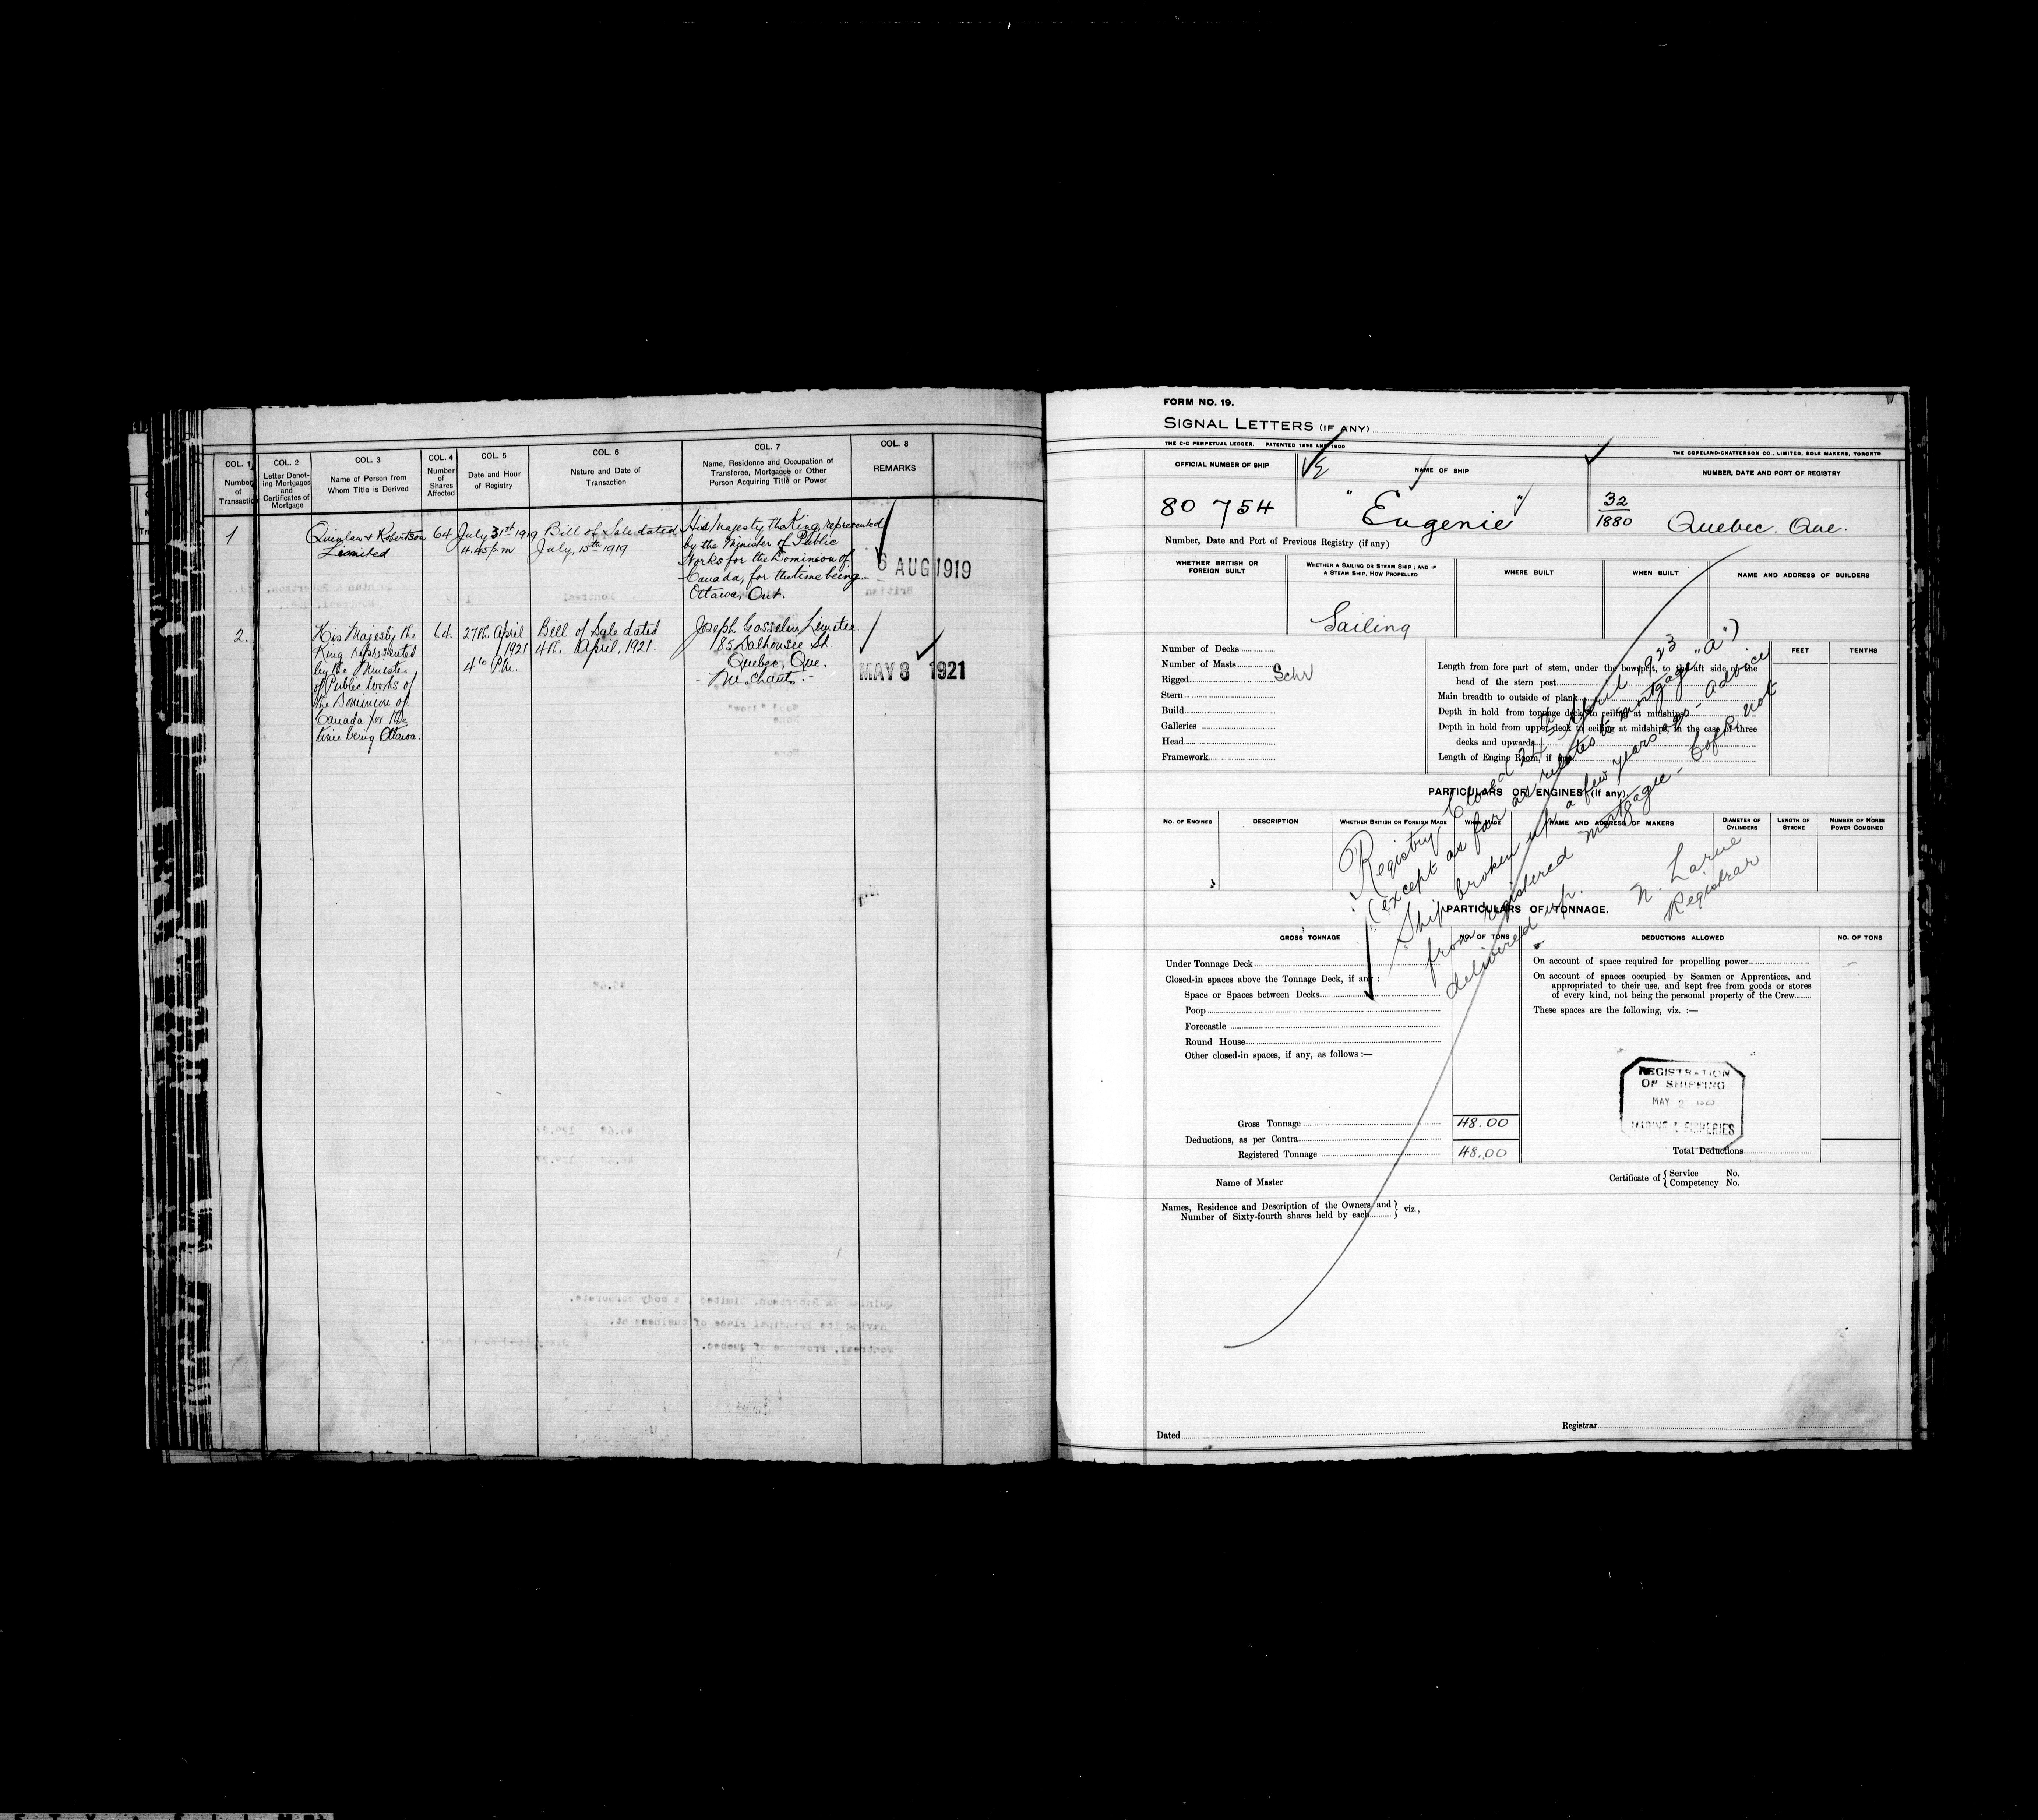 COL. 1
Number
of
Transaction
COL. 2
Letter Denot-
ing Mortgages
and
Certificates of
Mortgage
COL. 3
Name of Person from
Whom Title is Derived
COL. 4
Number
of
Shares
Affected
COL. 5
Date and Hour
of Registry
COL. 6
Nature and Date of
Transaction
COL. 7
Name, Residence and Occupation of
Transferee, Mortgagee or Other
Person Acquiring Title or Power
COL. 8
REMARKS
1
Quinlan & Robertson
Limited
64
July 31st 1919
4.45 pm
Bill of Sale dated
July, 15th 1919
His Majesty the King, represented
by the Minister of Public
Works for the Dominion of
Canada, for the time being
Ottawa, Ont.
6 AUG 1919
2.
His Majesty the
King represented
by the Minister
of Public Works of
the Dominion of
Canada for the
time being Ottawa.
64
27th April
1921
4 10 P.M.
Bill of Sale dated
4th April, 1921.
Joseph Gosselin Limitee
185 Dalhousie St.
Quebec, Que.
- Merchants. -
MAY 8 1921
FORM NO. 19.
SIGNAL LETTERS (IF ANY)
THE C-C PERPETUAL LEDGER. PATENTED 1896 AND 1900
THE COPELAND-CHATTERSON CO., LIMITED, SOLE MAKERS, TORONTO
OFFICIAL NUMBER OF SHIP
NAME OF SHIP
NUMBER, DATE AND PORT OF REGISTRY
80 754
"Eugenie"
32
1880
Quebec. Que.
Number, Date and Port of Previous Registry (if any)
WHETHER BRITISH OR
FOREIGN BUILT
WHETHER A SAILING OR STEAM SHIP; AND IF
A STEAM SHIP, HOW PROPELLED
WHERE BUILT
WHEN BUILT
NAME AND ADDRESS OF BUILDERS
Sailing
Number of Decks
Number of Masts
Rigged Schr
Stern
Build
Galleries
Head
Framework
FEET
TENTHS
Length from fore part of stem, under the bowsprit, to the aft side of the
head of the stern post
Main breadth to outside of plank
Depth in hold from tonnage deck to ceiling at midships
Depth in hold from upper deck to ceiling at midships, in the case of three
decks and upwards
Length of Engine Room, if any
PARTICULARS OF ENGINES (if any)
NO. OF ENGINES
DESCRIPTION
WHETHER BRITISH OR FOREIGN MADE
WHEN MADE
NAME AND ADDRESS OF MAKERS
DIAMETER OF
CYLINDERS
LENGTH OF
STROKE
NUMBER OF HORSE
POWER COMBINED
Registry Closed 24th April 1923
(except as far as relates to mortgage "A")
Ship broken up a few years ago - advice
from registered mortgagee - Cofr. not
delivered up.
N. Larue
Registrar
PARTICULARS OF TONNAGE.
GROSS TONNAGE
NO. OF TONS
DEDUCTIONS ALLOWED
NO. OF TONS
Under Tonnage Deck
Closed-in spaces above the Tonnage Deck, if any :
Space or Spaces between Decks
Poop
Forecastle
Round House
Other closed-in spaces, if any, as follows :—
Gross Tonnage 48.00
Deductions, as per Contra
Registered Tonnage 48.00
On account of space required for propelling power
On account of spaces occupied by Seamen or Apprentices, and
appropriated to their use, and kept free from goods or stores
of every kind, not being the personal property of the Crew
These spaces are the following, viz. :—
REGISTRATION
OF SHIPPING
MAY 2 1923
MARINE & FISHERIES
Total Deductions
Name of Master
Certificate of { Service No.
Competency No.
Names, Residence and Description of the Owners and
Number of Sixty-fourth shares held by each } viz.,
Dated
Registrar